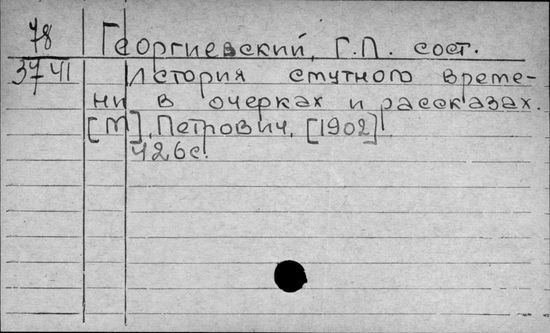 78 Георгиевский, Г.П. сост.
3741 История смутного време-
ни в очерках и рассказах.
[М], Петрович, [1902]
426с.